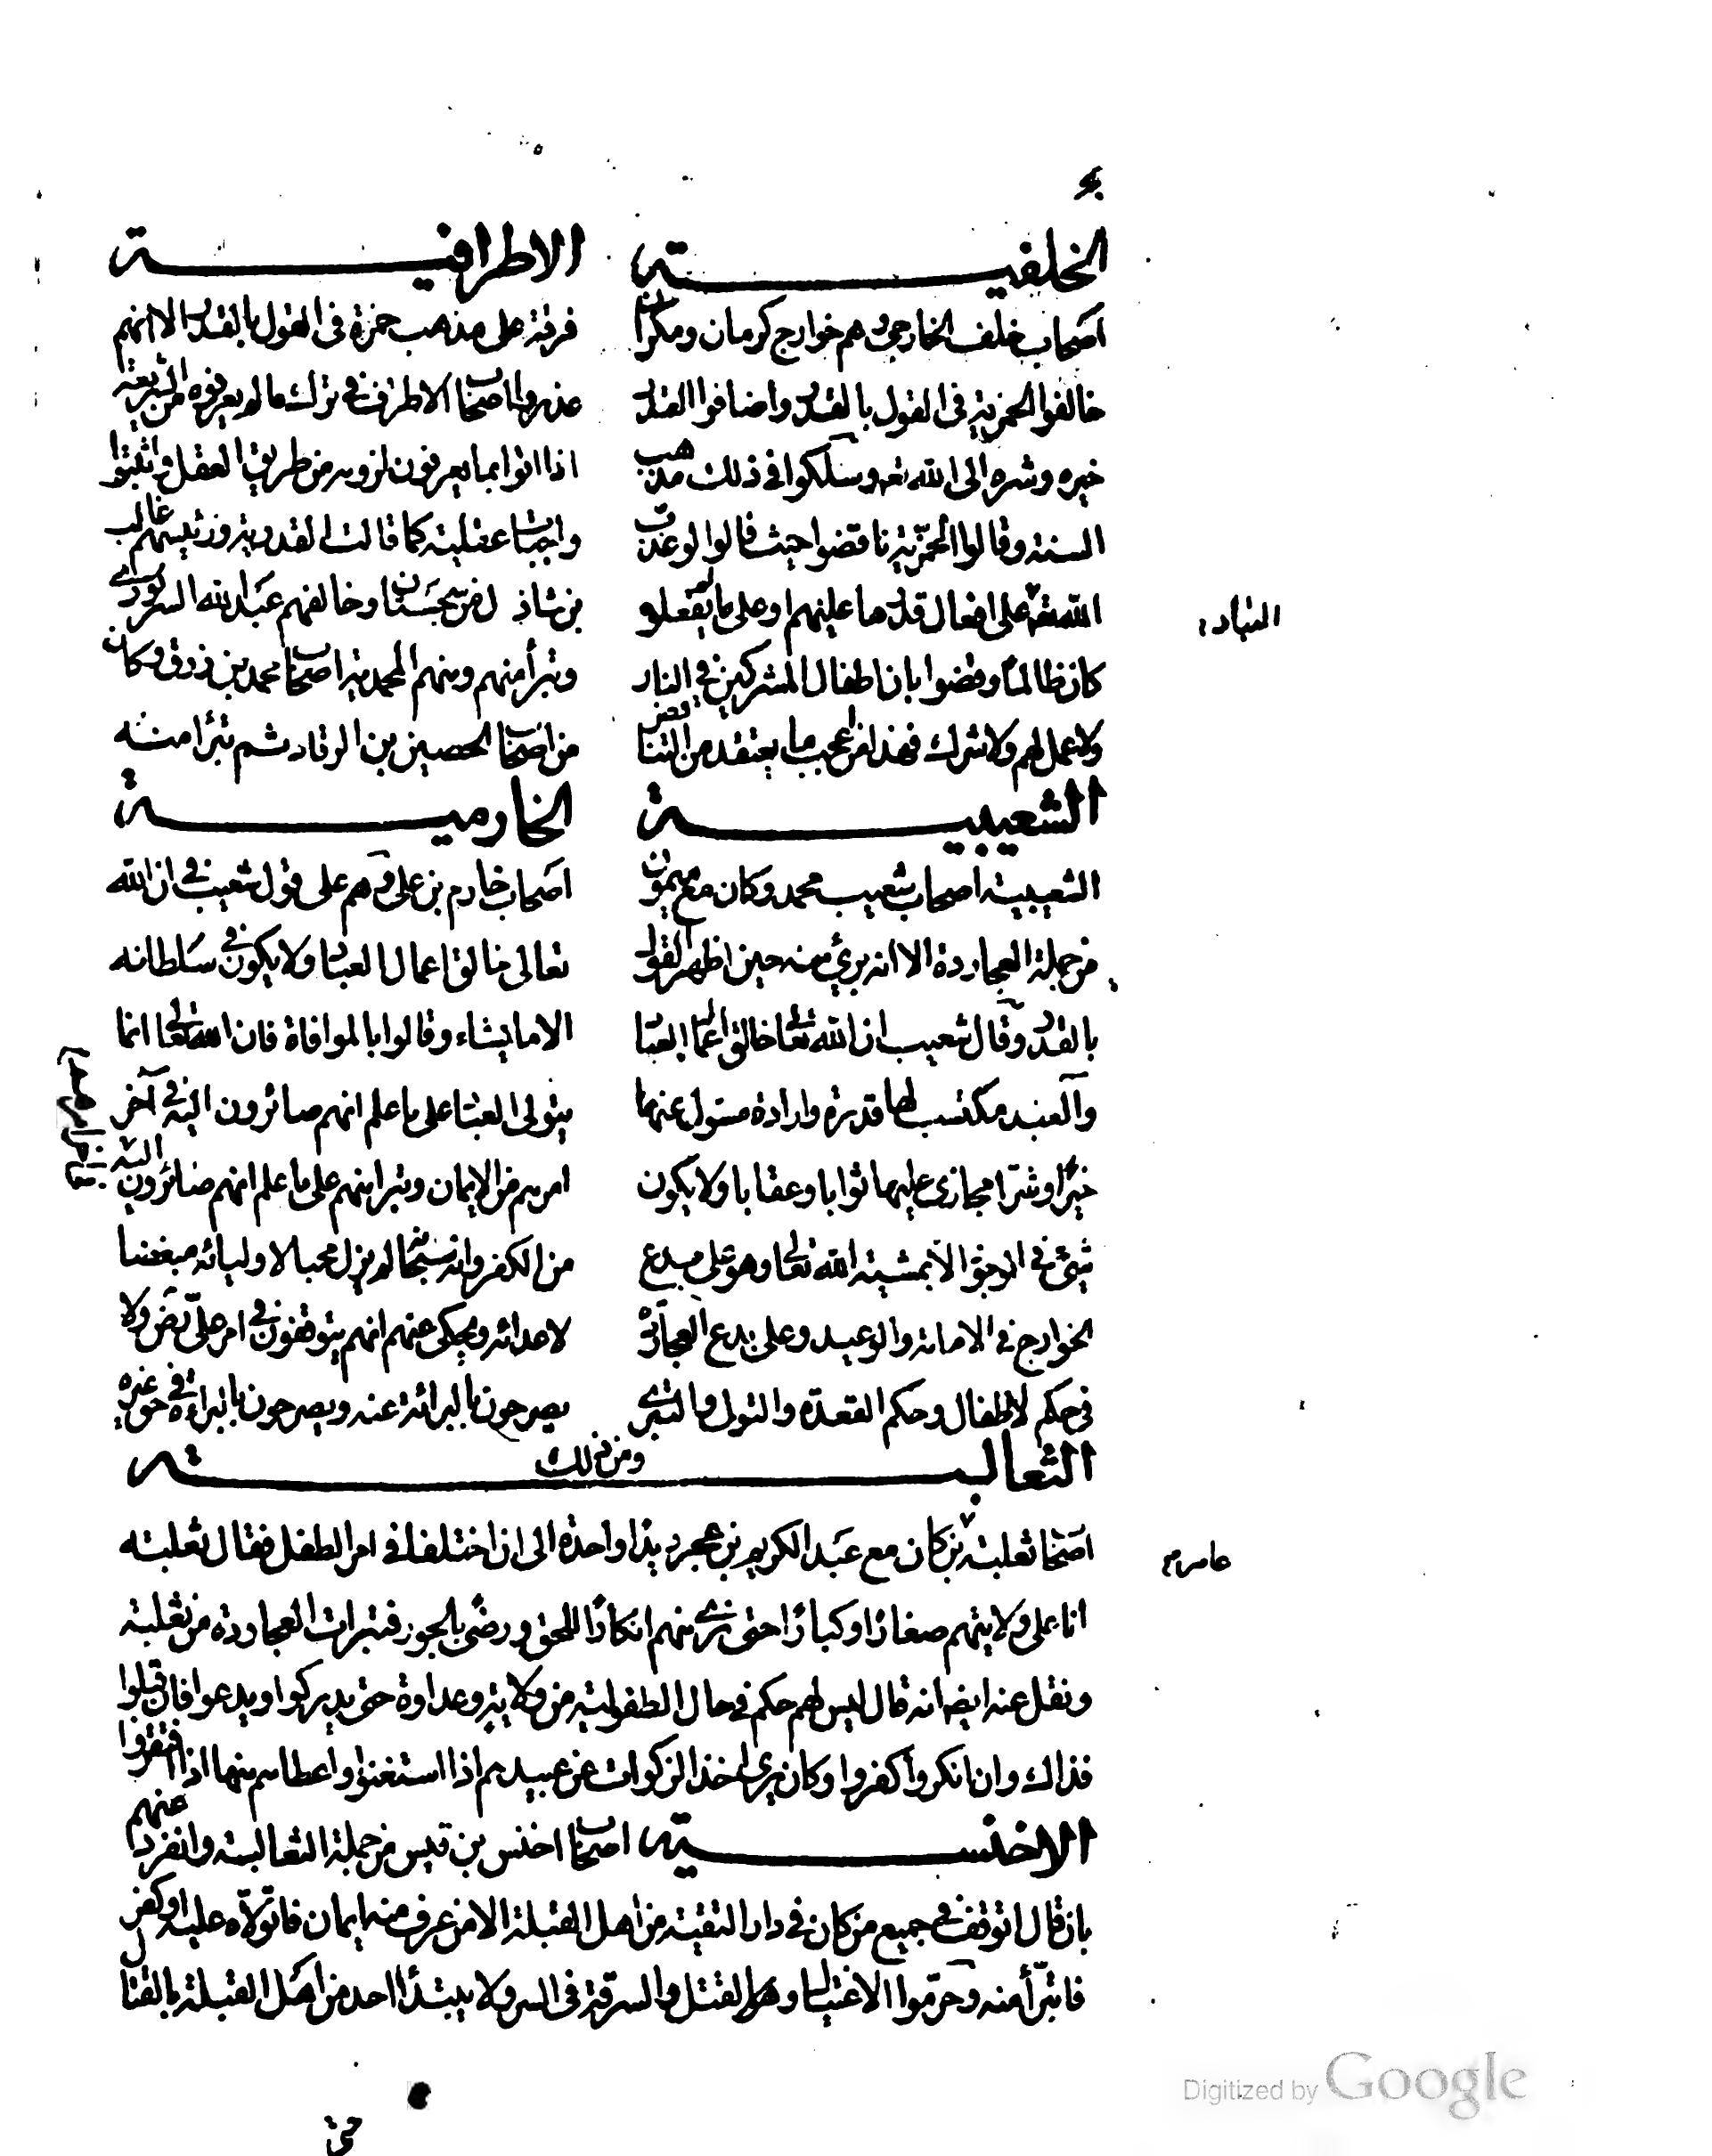 الخلفية
اصحاب خلف الخارجى وهم خوارج كرمان ومكران
خالفوا الحمزية فى القول بالقدر واضافوا القدر
خيره وشره الى الله تعه وسلكوا فى ذلك مذهب
السنة وقالوا الحمزية ناقضوا حيث قالوا لو عذب
الله تعه على افعال قدرها عليهم او على ما لم يفعلو
كان ظالما وقضوا بان اطفال المشركين فى النار
ولا عمل لهم ولا شرك فهذا من اعجب ما يعتقد من التناقض
الشعيبية
الشعيبية اصحاب شعيب محمد وكان مع ميمون
من جملة العجاردة الا انه برئ منه حين اظهر القول
بالقدر وقال شعيب ان الله تعالى خالق اعمال العباد
والعبد مكتسب لها قدرة وارادة مسئول عنها
خيرا وشرا مجازى عليها ثوابا وعقابا ولا يكون
شئ فى الوجود الا بمشية الله تعالى وهو على بدع
الخوارج فى الامامة والوعيد وعلى بدع العجاردة
فى حكم الاطفال وحكم القعدة والتولى والتبرى
الاطرافية
فرقة على مذهب حمزة فى القول بالقدر الا انهم
عذروا اصحاب الاطراف فى ترك ما لم يعرفوه من الشريعة
اذا اتوا بما يعرفون لزومه من طريق العقل واثبتوا
واجبات عقلية كما قالت القدرية ورئيسهم غالب
بن شاذل من سجستان وخالفهم عبد الله السرنورى
وتبرأ منهم ومنهم المحمدية اصحاب محمد بن زرق وكان
من اصحاب الحصين بن الرقاد ثم تبرا منه
الخارمية
اصحاب خارم بن على وهم على قول شعيب فى ان الله
تعالى خالق اعمال العباد ولا يكون فى سلطانه
الا ما يشاء وقالوا بالموافاة فان الله تعالى انما
يتولى العباد على ما علم انهم صائرون اليه فى آخر
امرهم من الايمان ويتبرا منهم على ما علم انهم صائرون اليه
من الكفر وانه سبحانه لم يزل محبا لاوليائه مبغضا
لاعدائه ويحكى عنهم انهم يتوقفون فى امر على رض ولا
يصرحون بالبرائة عنه ويصرحون بالبراءة فى حق غيره
الثعالبة
ومن ذلك
اصحاب ثعلبة بن كان مع عبد الكريم بن عجرد يدا واحدة الى ان اختلفا فى امر الطفل فقال ثعلبة
انا على ولايتهم صغارا وكبارا حتى نرى منهم انكارا للحق ورضى بالجور فتبرات العجاردة من ثعلبة
ونقل عنه ايضا انه قال ليس لهم حكم فى حال الطفولية من ولاية وعداوة حتى يدركوا ويدعوا فان قبلوا
فذاك وان انكروا كفروا وكان يرى اخذ الزكوات عن عبيدهم اذا استغنوا واعطاهم منها اذا افتقروا
الاخنسية اصحاب اخنس بن قيس من جملة الثعالبة وانفرد عنهم
بان قال اتوقف فى جميع من كان فى دار التقية من اهل القبلة الا من عرف منه ايمان فاتولاه عليه او كفر
فاتبرأ منه وحرموا الاغتيال والقتل والسرقة فى السر ولا يبتدأ احد من اهل القبلة بالقتال
عامر